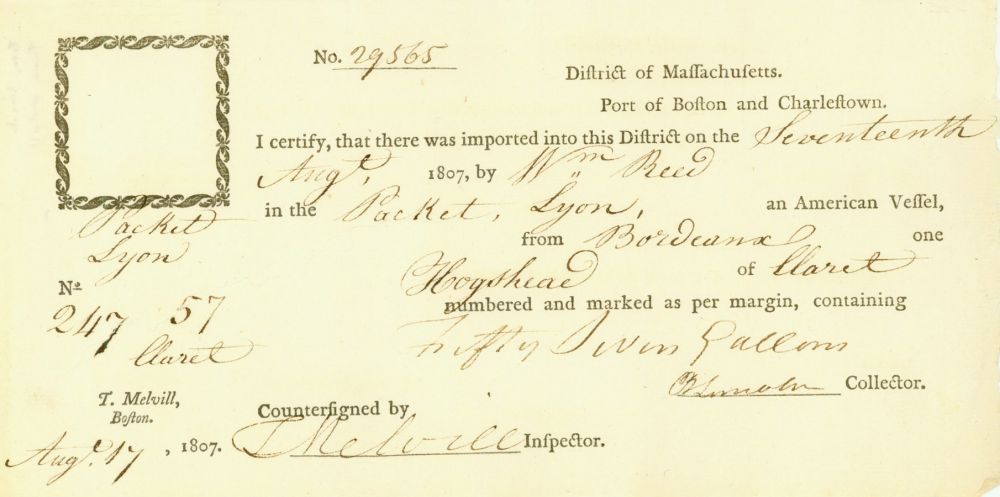 No. 29565
Diſtrict of Maſſachuſetts.
Port of Boſton and Charleſtown.
I certify, that there was imported into this Diſtrict on the Seventeenth
Augt, 1807, by Wm Reed
in the Packet, Lyon, an American Veſſel,
from Bordeaux one
Hogshead of Claret
numbered and marked as per margin, containing
Fifty Seven Gallons
B Lincoln Collector.
Packet
Lyon
No
247 57
Claret
T. Melvill,
Boſton.
Augt. 17, 1807.
Counterſigned by
T Melvill Inſpector.